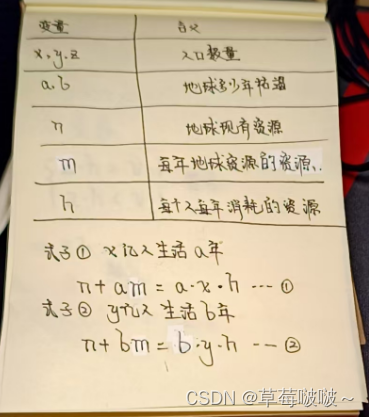 变量 含义
x,y,z 人口数量
a,b 地球多少年枯竭
n 地球现有资源
m 每年地球资源的资源..
h 每个人每年消耗的资源
式子① x亿人生活a年
n+am=a·x·h ---①
式子② y亿人生活b年
n+bm=b·y·h ---②
CSDN @草莓啵啵~